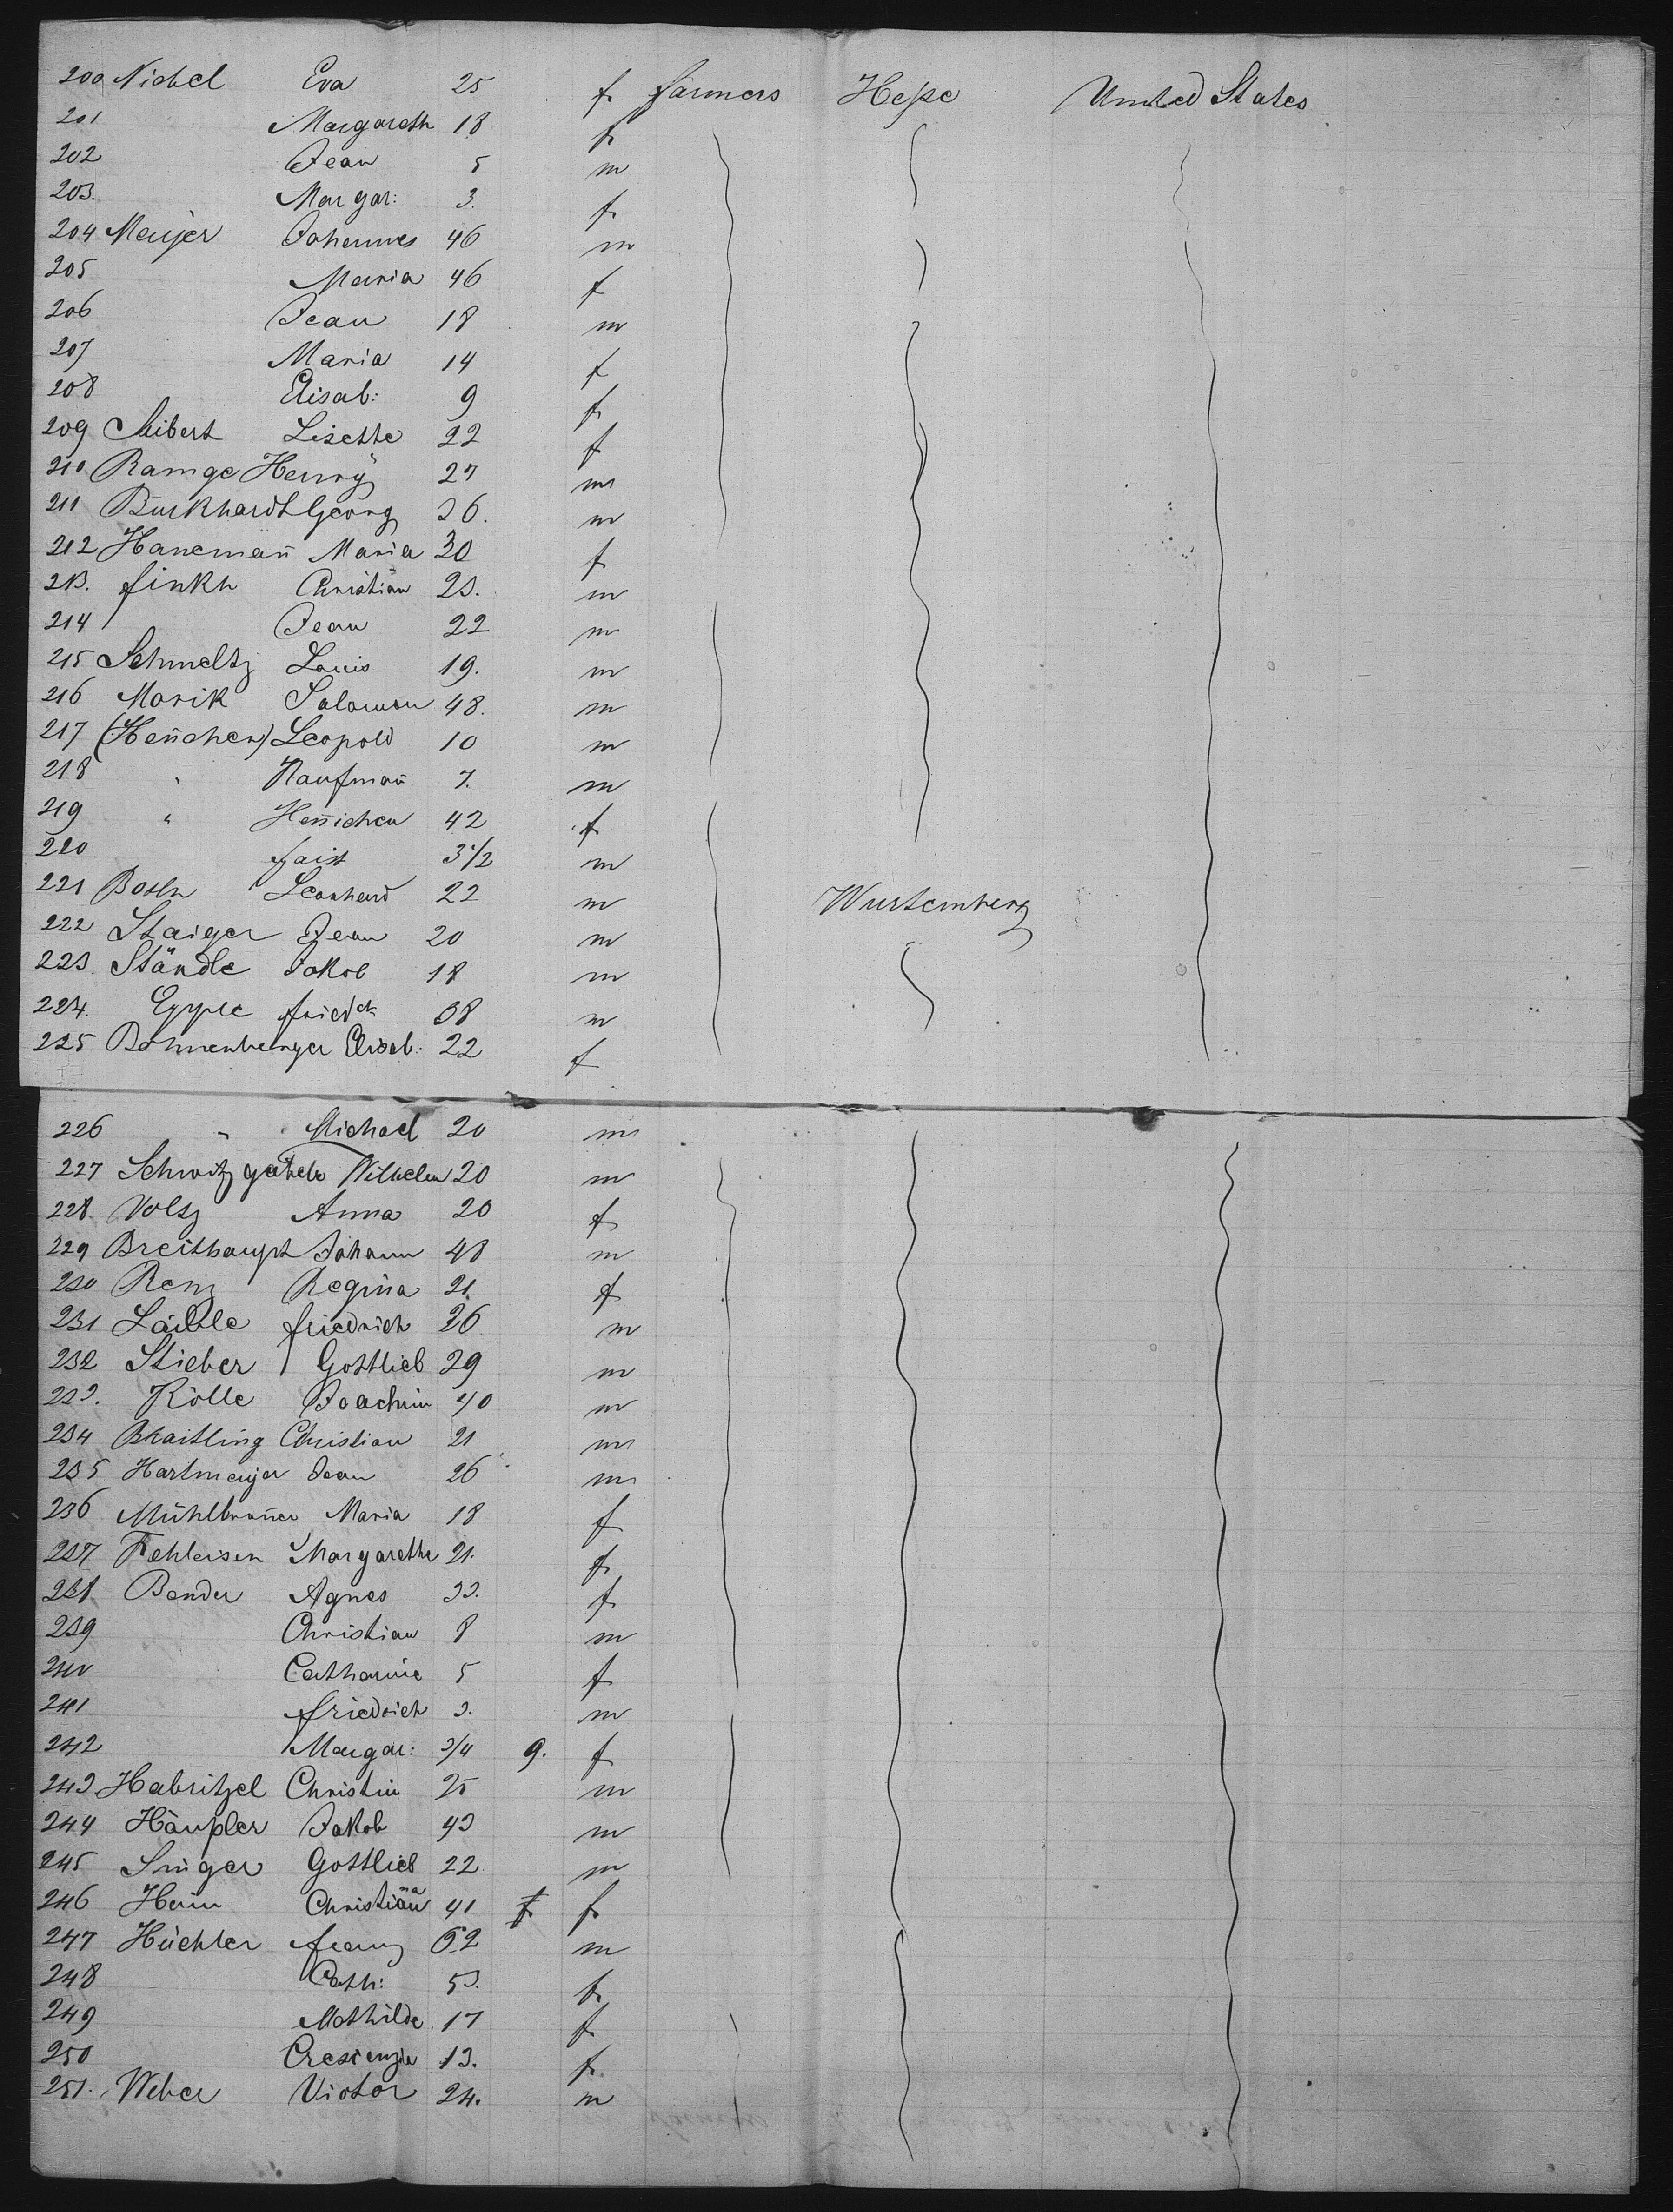 200 Nickel Eva 25 f. farmers Hesse United States
201 Margareth 18 f.
202 Jean 5 m
203. Margar: 3. f.
204 Meijer Johannes 46 m
205 Maria 46 f
206 Jean 18 m
207 Maria 14 f
208 Elisab: 9 f.
209 Seibert Lisette 22 f
210 Ramge Henry 27 m
211 Burkhardt Georg 36. m
212 Hanemañ Maria 30 f
213. finkh Christian 23. m
214 Jean 22 m
215 Schmeltz Louis 19. m
216 Morik Salomon 48. m
217 (Heñchen) Leopold 10 m
218 " Kaufmañ 7. m
219 " Heñichen 42 f
220 faist 3 1/2 m
221 Leonhard 22 m Wurtemberg
222 Staiger Jean 20 m
223. Ständle Jakob 18 m
224. Epple friedch 38 m
225 Bohnenberger Elisab: 22 f
226 " Michael 20 m
227 Wilhelm 20 m
228. Volz Anna 20 f
229 Breithaupt Johann 48 m
230 Renz Regina 21. f
231 Laible friedrich 26 m
232 Stieber Gottlieb 29 m
233. Kölle Joachim 40 m
234 Braitling Christian 21 m
235 Hartmeijer Jean 26 m
236 Mühlbroñer Maria 18 f
237 Fehleisen Margarethe 21. f.
238. Bender Agnes 33. f.
239 Christian 8 m
240 Catharine 5 f
241 friedrich 3. m
242 Margar: 3/4 9. f
243 Habritzel Christin 25 m
244 Häupler Jakob 43 m
245 Singer Gottlieb 22 m
246 Christiana 41 f f
247 Hüchler franz 62 m
248 Cath: 53. f.
249 Mathilde 17 f
250 Creszenzia 13. f.
251. Weber Victor 24. m